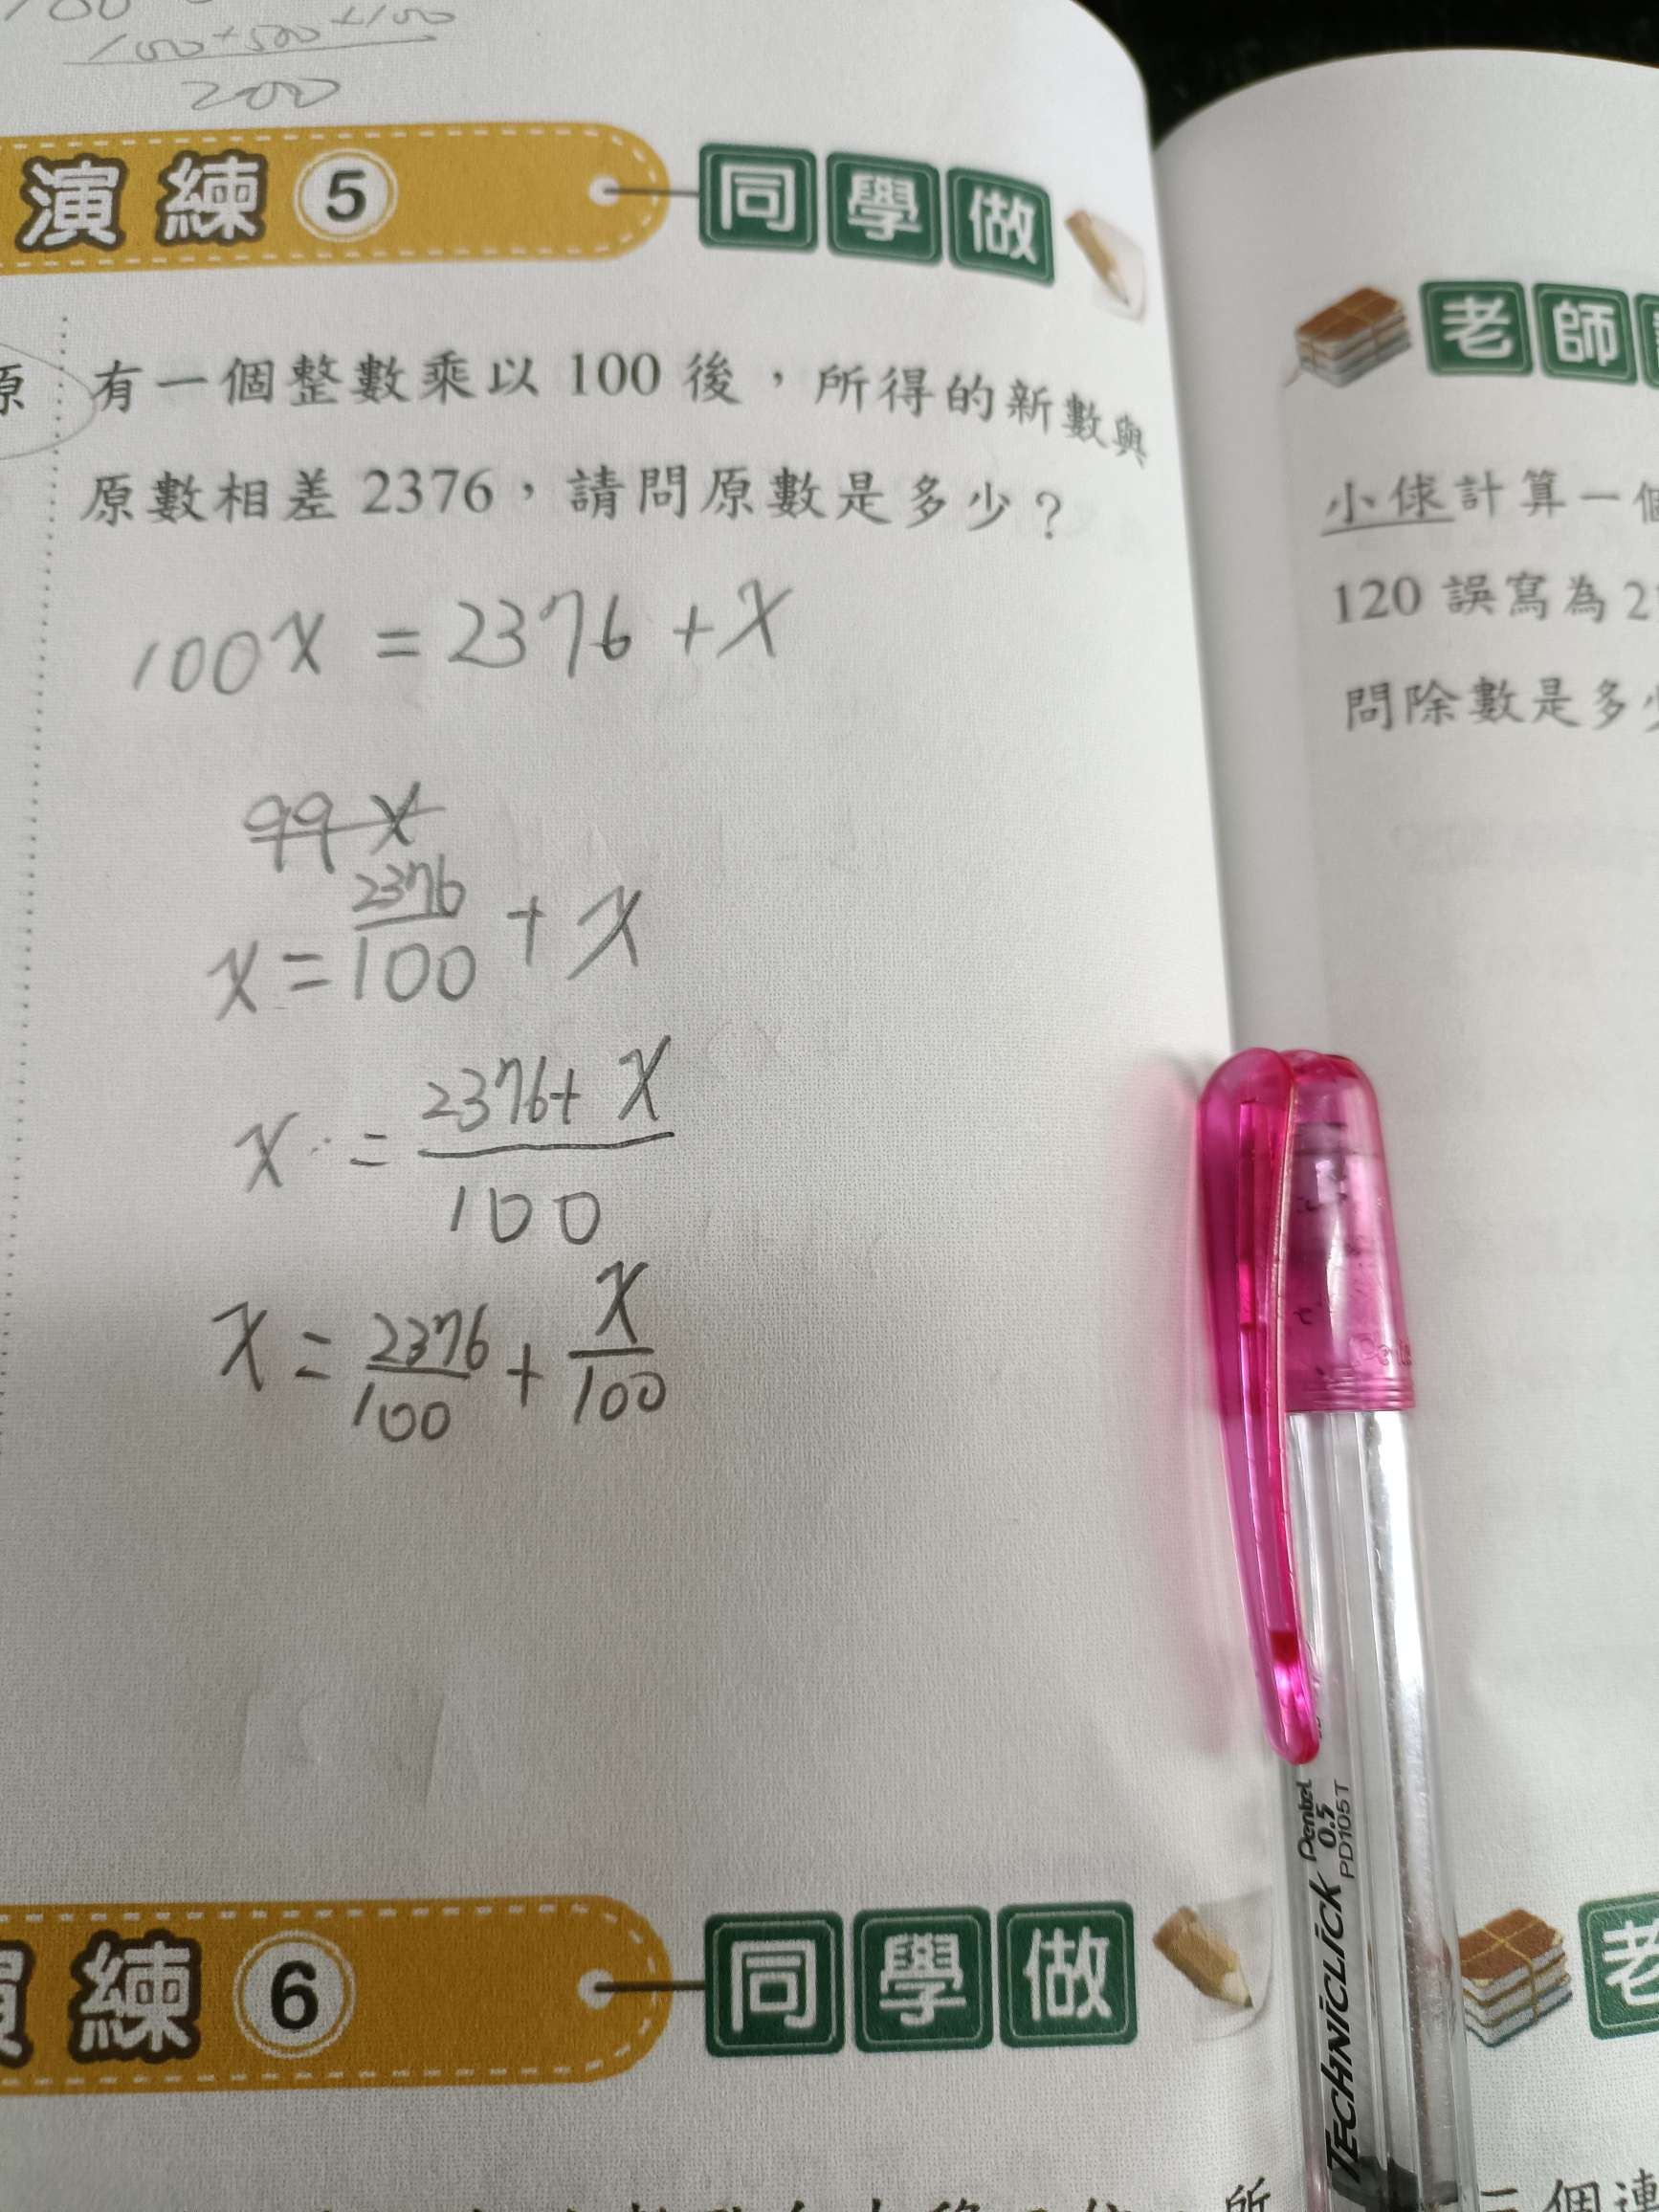 100+500+100
200
演練5 同學做
原
有一個整數乘以 100 後，所得的新數與
原數相差 2376，請問原數是多少？
100x = 2376 + x
99x
x = 2376/100 + x
x = 2376 + x / 100
x = 2376/100 + x/100
練6 同學做
老師
小俅計算一個
120 誤寫為 2
問除數是多少
Pentel
0.5
PD105T
TECHNICLICK
老
所
個連